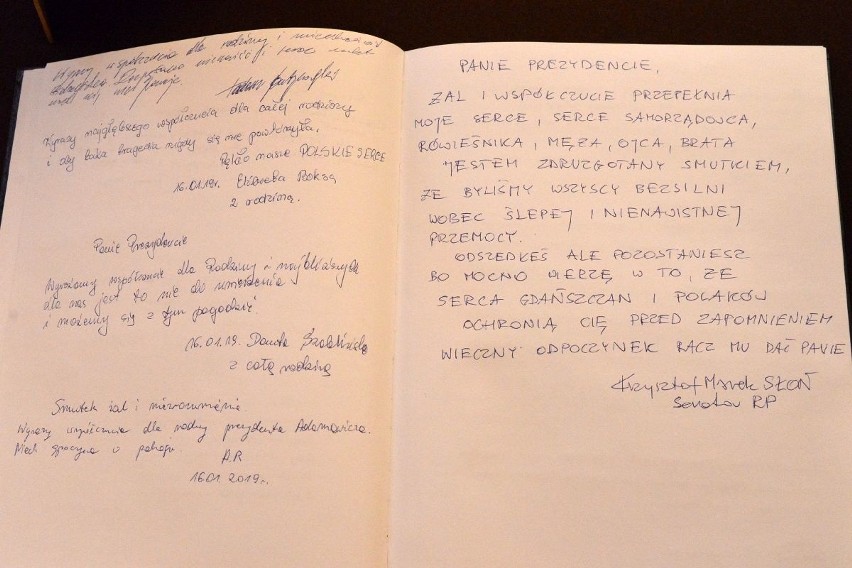 współczucia dla rodziny i
Wyrazy najgłębszego współczucia dla całej rodziny
i aby taka tragedia nigdy się nie powtórzyła.
Pękło nasze POLSKIE SERCE
16.01.19r. Elżbieta
z rodziną.
Panie Prezydencie
Wyrażamy współczucie dla Rodziny i najbliższych
dla nas jest to nie do
i możemy się z tym pogodzić.
16.01.19. Danuta
z całą rodziną
Smutek żal i niezrozumienie
Wyrazy współczucia dla rodziny prezydenta Adamowicza.
Niech spoczywa w pokoju
A.R
16.01.2019r.
PANIE PREZYDENCIE,
ŻAL I WSPÓŁCZUCIE PRZEPEŁNIA
MOJE SERCE, SERCE SAMORZĄDOWCA,
RÓWIEŚNIKA, MĘŻA, OJCA, BRATA
JESTEM ZDRUZGOTANY SMUTKIEM,
ŻE BYLIŚMY WSZYSCY BEZSILNI
WOBEC ŚLEPEJ I NIENAWISTNEJ
PRZEMOCY.
ODSZEDŁEŚ ALE POZOSTANIESZ
BO MOCNO WIERZĘ W TO, ŻE
SERCA GDAŃSZCZAN I POLAKÓW
OCHRONIĄ CIĘ PRZED ZAPOMNIENIEM
WIECZNY ODPOCZYNEK RACZ MU DAĆ PANIE
Krzysztof Marek SŁOŃ
Senator RP